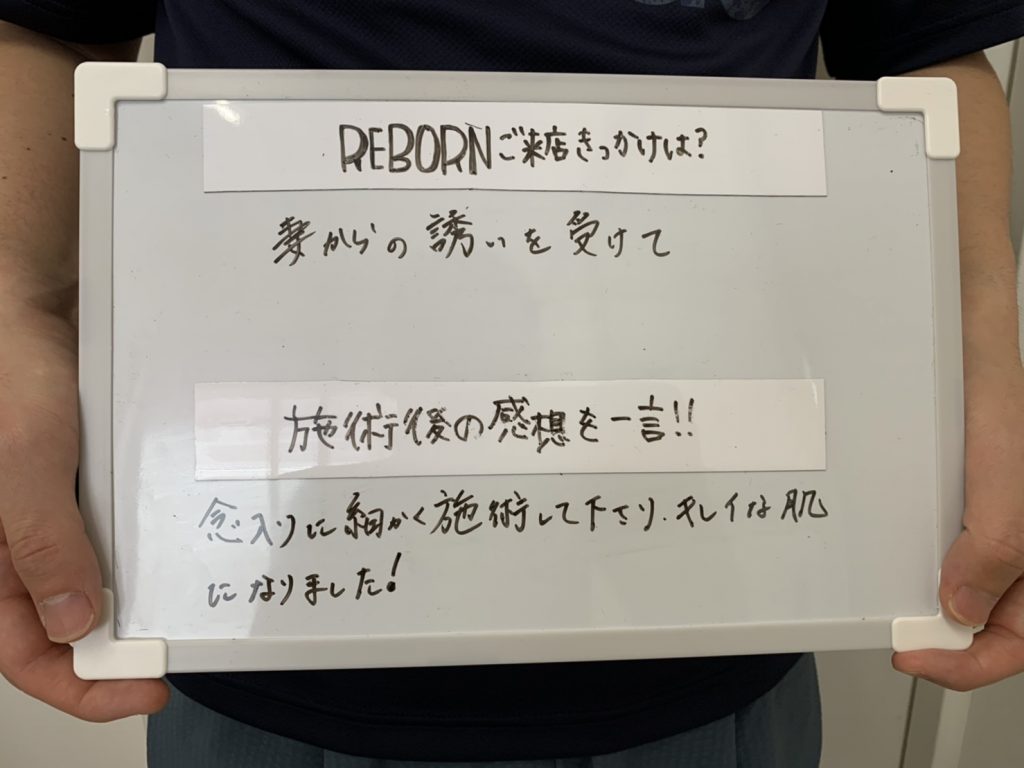 REBORNご来店きっかけは?
妻からの誘いを受けて
施術後の感想を一言!!
念入りに細かく施術して下さり、キレイな肌
になりました!